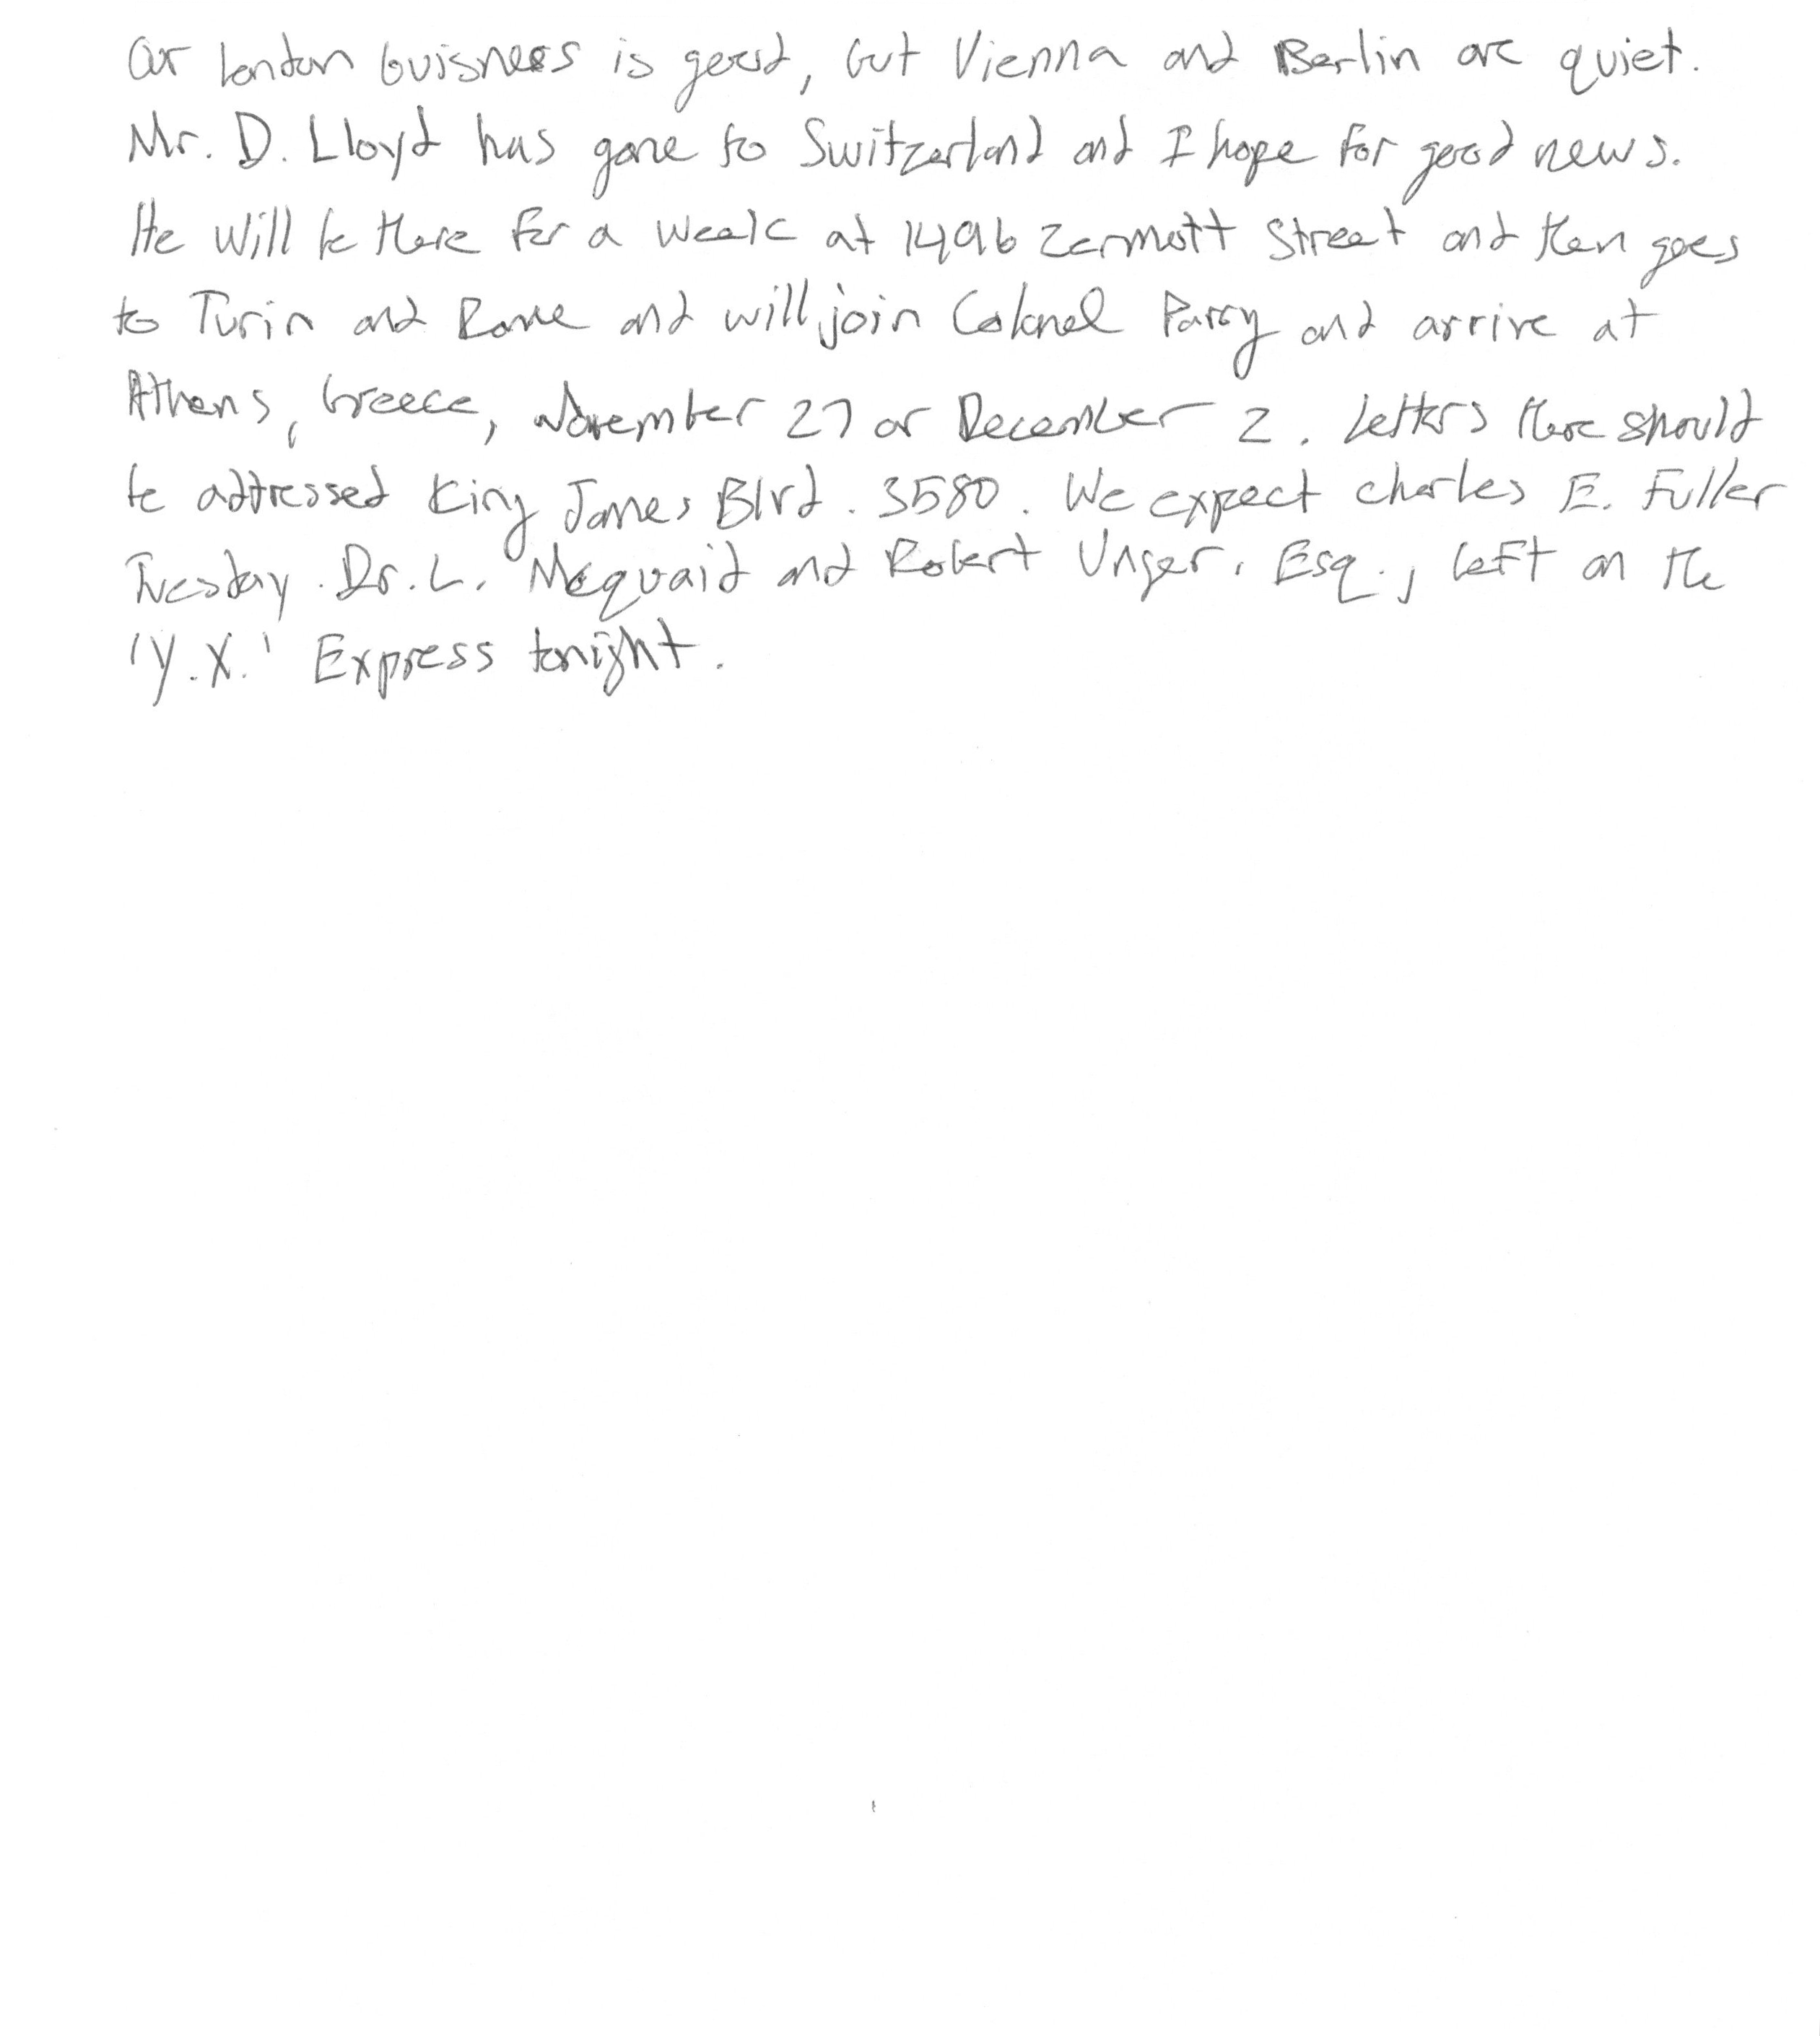 Our London buisness is good, but Vienna and Berlin are quiet.
Mr. D. Lloyd has gone to Switzerland and I hope for good news.
He will be there for a week at 1496 Zermott Street and then goes
to Turin and Rome and will join Colonel Parry and arrive at
Athens, Greece, November 27 or December 2. Letters there should
be addressed King James Blvd. 3580. We expect Charles E. Fuller
Tuesday. Dr. L. Mcquaid and Robert Unger, Esq., left on the
'Y.X.' Express tonight.